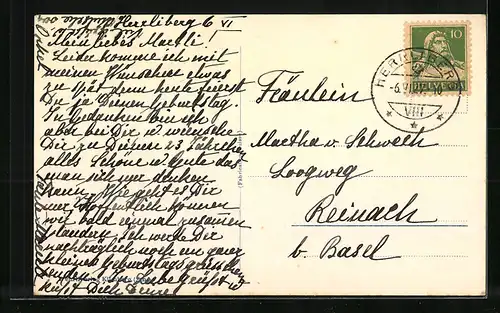 Herrliberg 6 VI
Mein liebes Martli!
Leider komme ich mit
meinen Wünschen etwas
zu spät denn heute feierst
Du ja Deinen Geburtstag.
In Gedanken bin ich
aber bei Dir u. wünsche
Dir zu Deinem 23 Jährchen
alles Schöne u. Gute das
man sich nur denken
kann. Wie geht es Dir
nur, hoffentlich können
wir bald einmal zusamen
plaudern. Ich werde Dir
nachträglich noch ein ganz
kleines Geburtstagsgrüsschen
senden. Sei lieb gegrüsst u.
küsst Dich Deine
Fräulein
Martha von Schwelh
Loogweg
Reinach
b. Basel
10
HELVETIA
HERRLIBERG
VIII